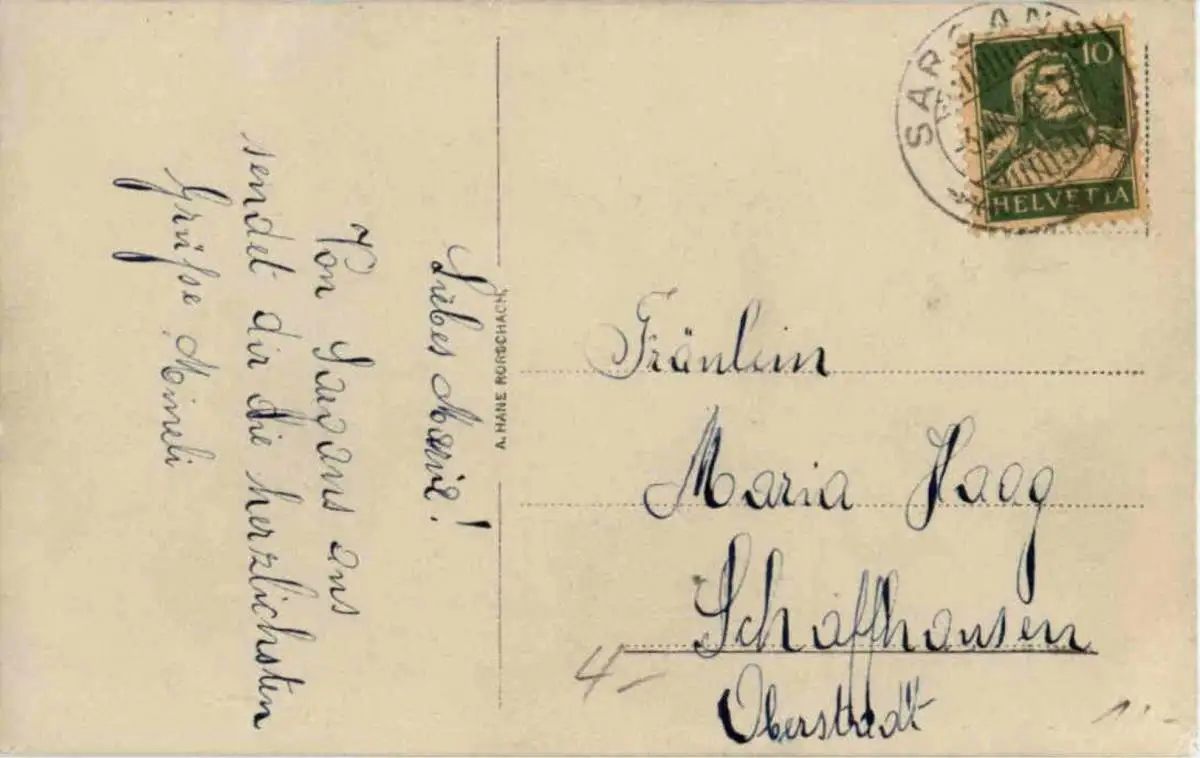 Liebes Marie!
Von Sargans aus
sendet dir die herzlichsten
Grüsse Mineli
A. HANE RORSCHACH.
SARGANS
10
HELVETIA
Fräulein
Maria Haag
Schaffhausen
Oberstadt
4.-